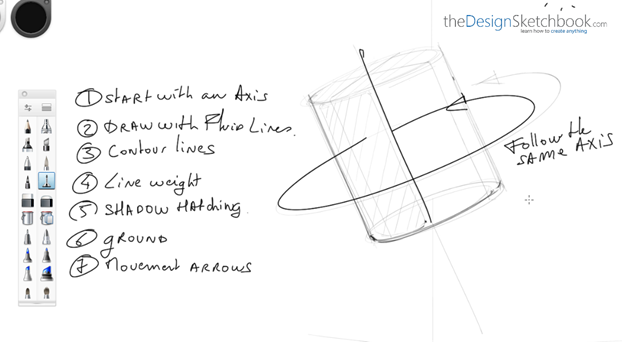 theDesignSketchbook.com
learn how to create anything
1 START with an Axis
2 DRAW with Fluid Lines.
3 Contour lines
4 Line weight
5 SHADOW HATCHING.
6 GROUND
7 Movement ARROWS
Follow the
SAME AXIS